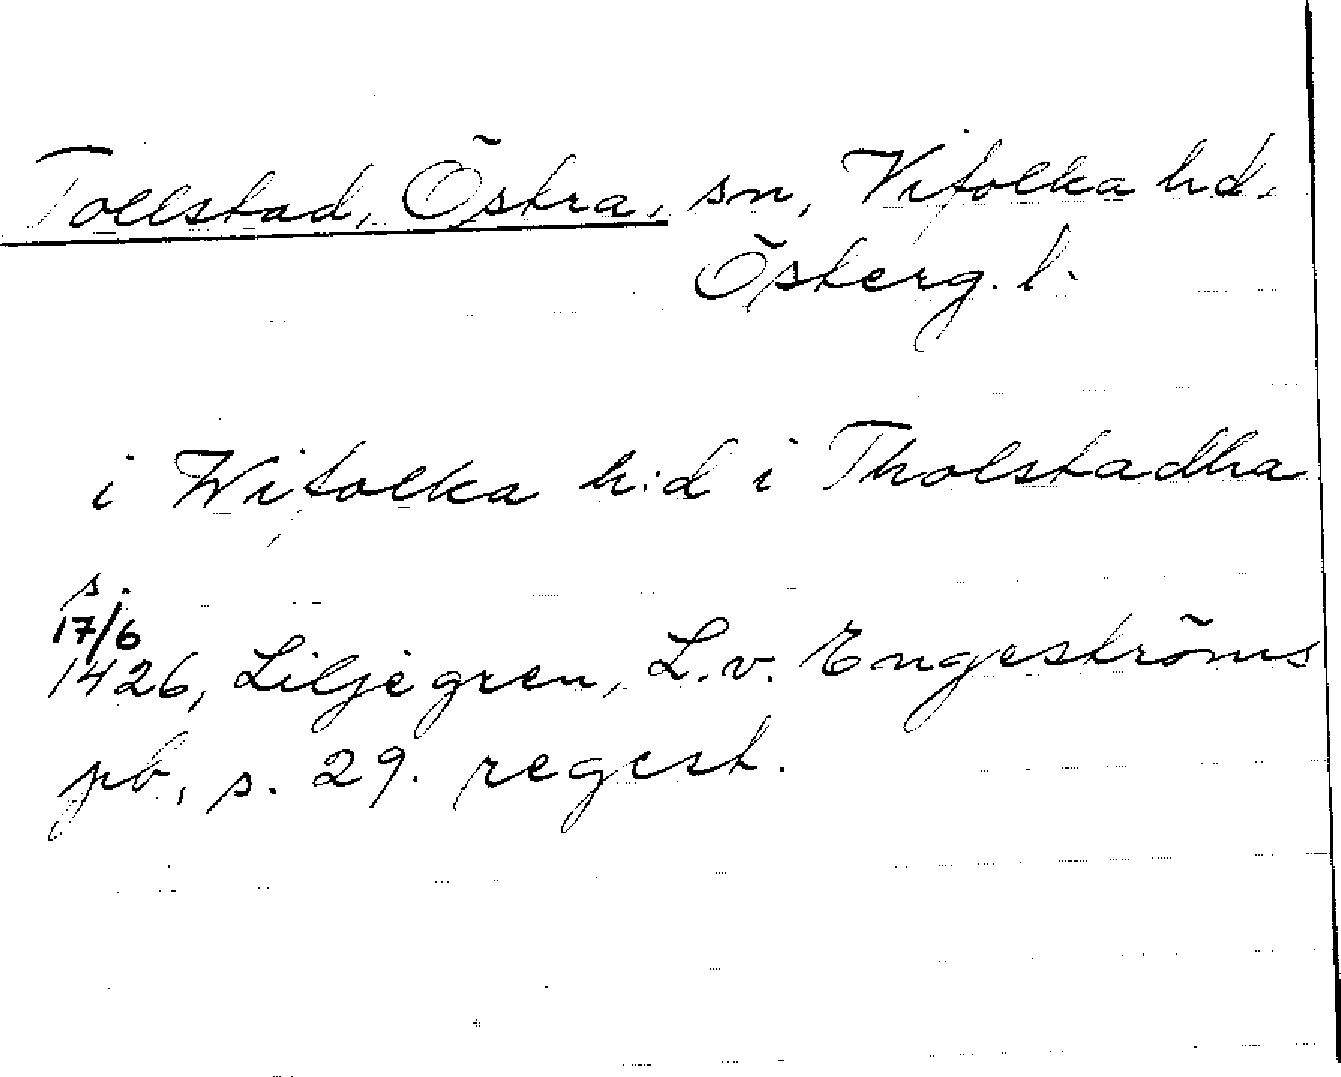 Tollstad, Östra, sn, Vifolka hd.
Österg. l.
i Wifolka h:d i Tholstadha
s.
17/6
1426, Liljegren, L.v. Engeströms
pb, s. 29. regest.